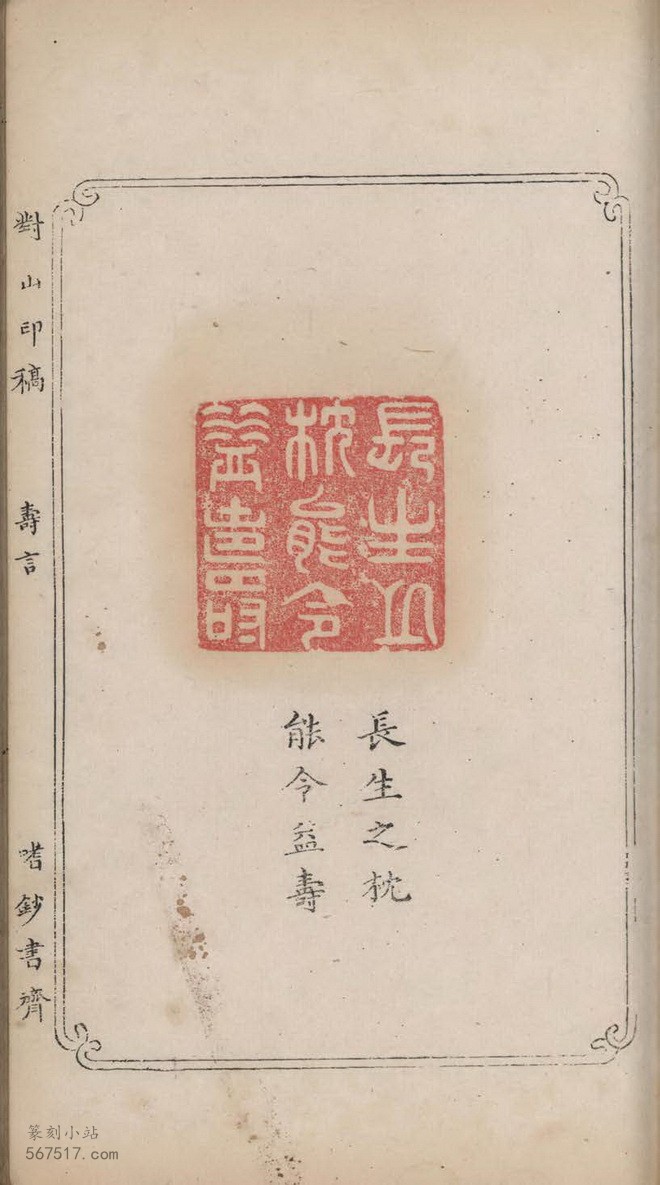 長生之枕能令益壽
長生之枕
能令益壽
對山印稿 壽言 嗜鈔書齊
篆刻小站
567517.com